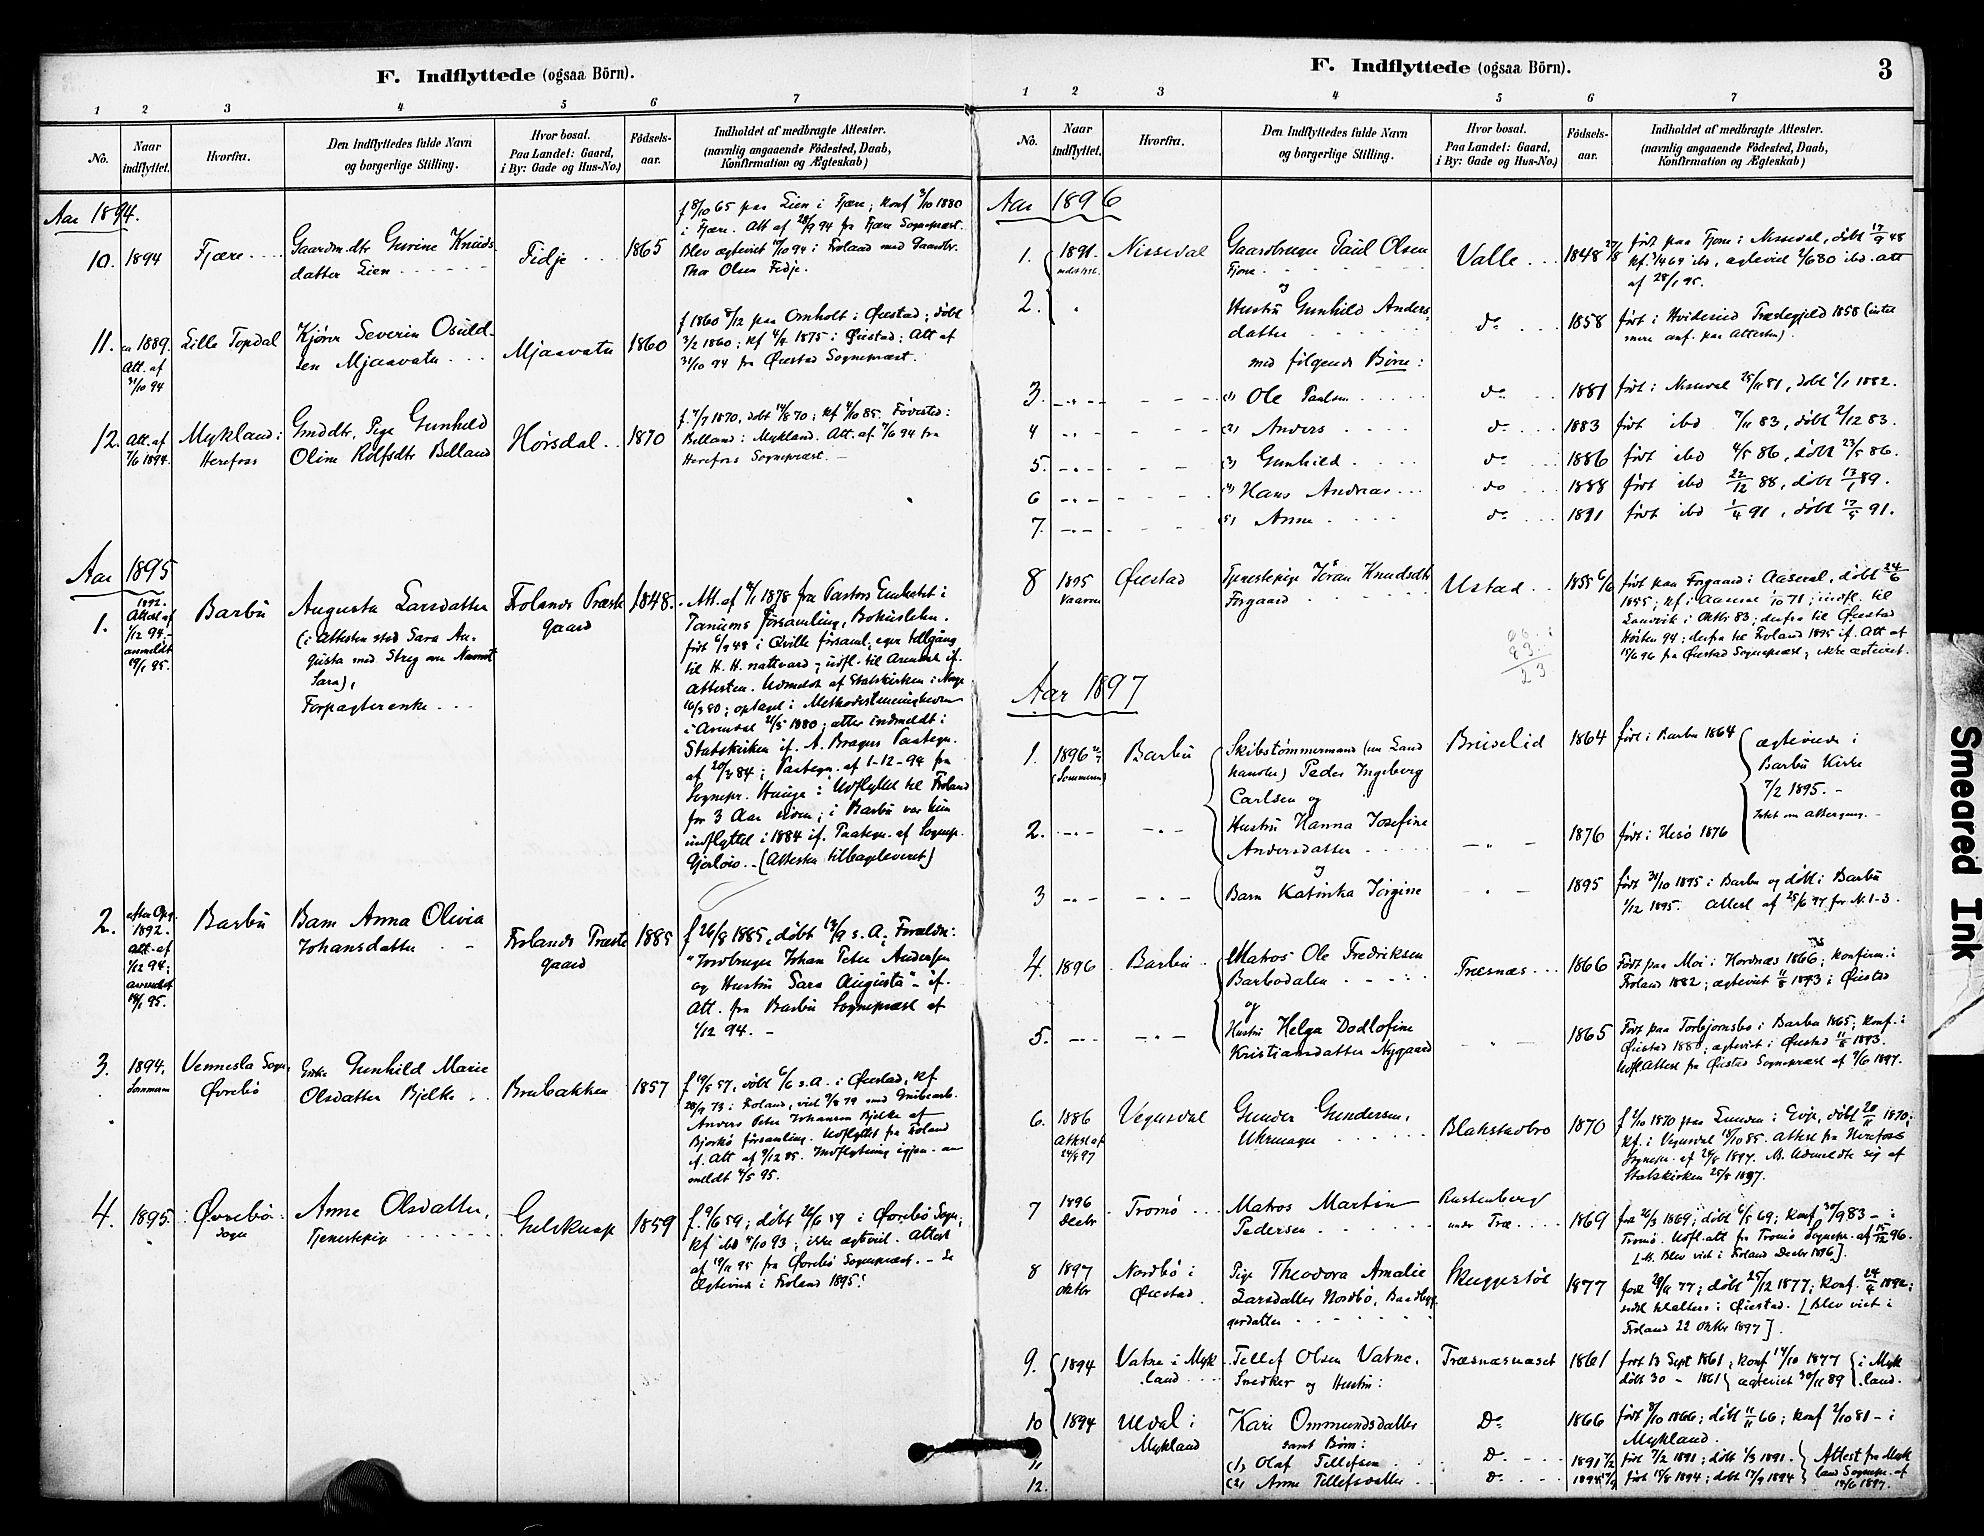 F. Indflyttede (ogsaa Börn).
1 2 3 4 5 6 7
No.
Naar indflyttet.
Hvorfra.
Den Indflyttedes fulde Navn
og borgerlige Stilling.
Hvor bosat.
Paa Landet: Gaard,
i By: Gade og Hus-No.)
Födsels-
aar.
Indholdet af medbragte Attester.
(navnlig angaaende Födested, Daab,
Konfirmation og Ægteskab)
Aar 1894.
10. 1894 Fjære
datter Lien
Fidje 1865
f 8/10 65 paa Lien i Fjære; konf 3/10 1880
i Fjære. Att af 28/9 94 fra Fjære Sognepræst.
Thor Olsen Fidje.
11. ca 1889. Lille Topdal
Att. af
31/10 94
Kjören Severin Osuld-
sen Mjaavatn
Mjaavatn 1860
3/2 1860; kf 4/4 1875 i Öiestad; Att af
31/10 94 fra Öiestad Sognepræst.
12. Att. af
7/6 1894.
Mykland i
Herefoss
Gmddtr, Pige Gunhild
Oline Rolfsdtr Belland
Hörsdal 1870
Belland i Mykland. Att. af 7/6 94 fra
Herefoss Sognepræst. –
Aar 1895
1. 1892.
Attest af
1/12 94,
anmeldt
19/1 95.
Barbu
Augusta Larsdatter
(i Attesten sted Sara Au-
gusta med Streg over Navnet
Sara),
Forpagterenke
Frolands Præste
gaard
1848.
Tanums Församling, Bohuslehn.
til H. H. nattvard; udfl. til Arendal if.
Attesten. Udmeldt af Statskirken i Norge
16/3 80; optaget i Methodistmenigheden
i Arendal 21/5 1880; atter indmeldt i
Statskirken if. A. Brages Paategn.
af 20/3 84; Paategn. af 1-12-94 fra
Sognepr. Hauge: Udflyttet til Froland
for 3 Aar siden; i Barbu var hun
indflyttet i 1884 if. Paategn. af Sognepr.
(Attesten tilbageleveret)
2. 1892.
Att. af
1/12 94;
anmeldt
19/1 95.
Barbu
Barn Anna Olivia
Johansdatter
Frolands Præste
gaard
1885
f 26/8 1885, döbt 13/9 s. A; Forældre:
"Jordbruger Johan Peter Andersen
og Hustru Sara Augusta" – if.
Att. fra Barbu Sognepræst af
1/12 94. –
3. 1894,
Sommeren
Vennesla Sogn,
Övrebö
Enke Gunhild Marie
Olsdatter Bjelke
Brubakken 1857
f 19/5 57, döbt 6/6 s.A. i Öiestad, kf
Anders Peter Johansen Bjelke af
Björkö församling. Udflyttet fra Froland
meldt 4/5 95.
4. 1895. Övrebö
Sogn
Anne Olsdatter,
Tjenestepige
Gulsknap 1859
f. 9/6 59; döbt 26/6 59 i Övrebö Sogn;
kf ibd 4/10 93; ikke ægteviet. Attest
af 19/11 95 fra Övrebö Sognepræst. – Se
Ægteviede i Froland 1895!
F. Indflyttede (ogsaa Börn).
3
1 2 3 4 5 6 7
No.
Naar
indflyttet.
Hvorfra.
Den Indflyttedes fulde Navn
og borgerlige Stilling.
Hvor bosat.
Paa Landet: Gaard,
i By: Gade og Hus-No.)
Födsels-
aar.
Indholdet af medbragte Attester.
(navnlig angaaende Födested, Daab,
Konfirmation og Ægteskab)
Aar 1896
1. 1891. Nissedal
Gaardbruger Paul Olsen
Fjone
og
Valle 1848
født paa Fjone i Nissedal, döbt 17/9 48
af 28/1 95.
2.
Hustru Gunhild Anders-
datter
med følgende Børn:
do 1858
født i Hvideseid Præstegjeld 1858 (intet
mere anf. paa Attesten).
3. (1) Ole Paulsen do 1881 født i Nissedal 25/11 81, döbt 1/1 1882.
4 (2) Anders do 1883 født ibd 7/11 83, döbt 2/12 83.
5. (3) Gunhild do 1886 født ibd 4/5 86, döbt 23/5 86.
6 (4) Hans Andreas do 1888 født ibd 22/12 88, döbt 13/1 89.
7. (5) Anne do 1891 født ibd 1/4 91, döbt 17/5 91.
8 1895
Vaaren
Öiestad
Tjenestepige Jöran Knudsdtr
Forgaard
Ustad 1855 6/6
født paa Forgaard i Aaseral, döbt 24/6
1855; kf i Aaseral 1/10 71; indfl. til
Landvik i Oktbr 83; derfra til Öiestad
Hösten 94; derfra til Froland 1895 if. Att af
15/6 96 fra Öiestad Sognepræst; ikke ægteviet.
23
Aar 1897
1. 1896
(Sommeren)
Barbu
Skibstömmermand (nu Land
handler) Peder Ingeberg
Carlsen og
Bruselid 1864 født i Barbu 1864
ægteviede i
Barbu Kirke
7/2 1895. –
2.
Hustru Hanna Josefine
Andersdatter
og
1876 født i Hisö 1876
3 Barn Katinka Jörgine 1895
født 31/10 1895 i Barbu og döbt i Barbu
1/12 1895. Attest af 25/6 97 for N. 1-3.
4. 1896 Barbu
Matros Ole Fredriksen
Barbodalen
og
Træsnæs 1866
Født paa Moi i Hordnæs 1866; konfirm. i
Froland 1882; ægteviet 11/8 1893 i Öiestad
5.
Hustru Helga Dodlofine
Kristiansdatter Nygaard
1865
Født paa Torbjornsbo i Barbu 1865; konf. i
Öiestad 1880; ægteviet i Öiestad 11/8 1893.
Udfl. Attest fra Öiestad Sognepræst af 9/6 1897.
6. 1886
Attest af
24/8 97
Vegusdal
Gunder Gundersen,
Uhrmager
Blakstadbro 1870
f 2/10 1870 paa Lunden i Evje, döbt 20/11 1870;
kf. i Vegusdal 18/10 85. Attest fra Herefoss
Sognepr. af 24/8 1897. NB. Udmeldte sig af
Statskirken 25/8 1897.
7 1896
Decbr
Tromö
Matros Martin
Pedersen
Rustenberg
under Træ
1869
født 26/3 1869; döbt 6/5 69; konf. 30/9 83 – i
Tromö. Udfl. att fra Tromö Sognepr. af 15/12 96.
[NB. Blev viet i Froland Decbr 1896].
8 1897
Oktbr
Nordbö i
Öiestad
Pige Theodora Amalie
Larsdatter Nordbö, Baadbyg-
gerdatter
Skuggestöl 1877
født 29/11 77; döbt 25/12 1877; konf. 24/4 1892;
[Blev viet i
Froland 22 Oktbr 1897].
9. 1894 Vatne i Myk
land
Tellef Olsen Vatne,
Snedker og Hustru:
Træsnæsnæset 1861
født 13 Sept 1861; konf 14/10 1877
döbt 30 – 1861 ægteviet 30/11 89
i Myk
land.
10 1894 Uldal i
Mykland
Kari Ommundsdatter
samt Börn:
Do 1866
født 8/10 1866; döbt 11/11 66; konf 2/10 81 – i
Mykland.
11 (1) Olaf Tellefsen Do 1891 7/2 født 7/2 1891; döbt 1/3 1891.
12. (2) Anne Tellefsdatter Do 1894 født 15/8 1894; döbt 17/9 1894
Attest fra Myk
land Sognepr. af
14/6 1897.
Smeared Ink